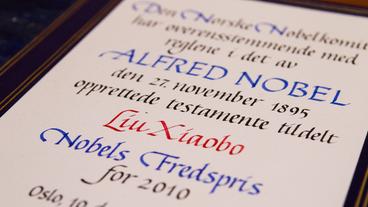 Den Norske Nobelkomit
har overensstemmende med
reglene i det av
ALFRED NOBEL
den 27. november 1895
opprettede testamente tildelt
Liu Xiaobo
Nobels Fredspris
for 2010
Oslo, 10. d